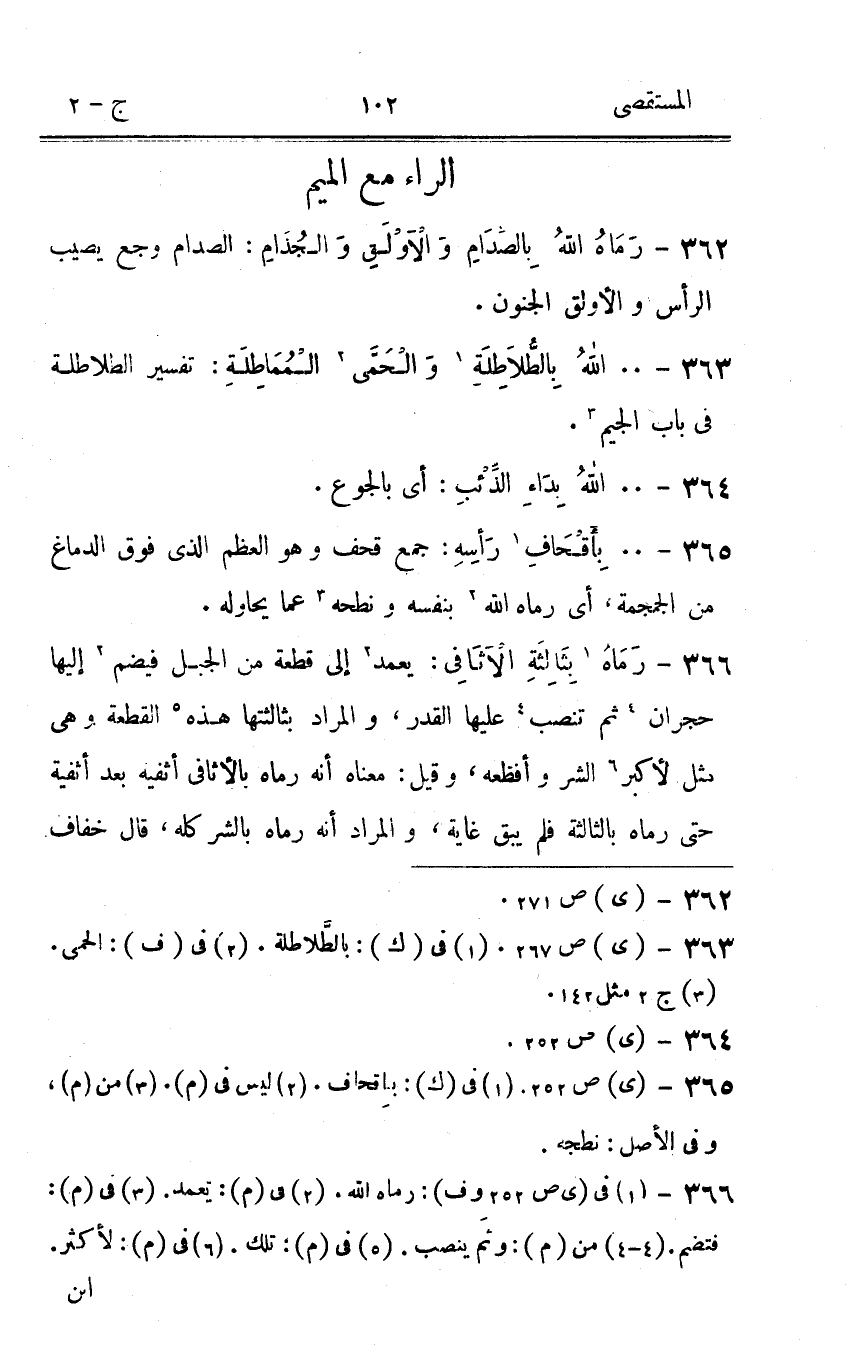 المستقصى ١٠٢ ج – ٢
الراء مع الميم
٣٦٢ – رَمَاهُ اللهُ بِالصُّدَامِ وَ الْأَوْلَقِ وَ الْجُذَامِ : الصدام وجع يصيب
الرأس و الأولق الجنون .
٣٦٣ – ٠٠ اللهُ بِالطُّلَاطِلَةِ ١ وَ الْحُمَّى ٢ الْمُمَاطِلَةِ : تفسير الطلاطلة
فى باب الجيم ٣ .
٣٦٤ – ٠٠ اللهُ بِدَاءِ الذِّئْبِ : أى بالجوع .
٣٦٥ – ٠٠ بِأَقْحَافِ ١ رَأْسِهِ : جمع قحف و هو العظم الذى فوق الدماغ
من الجمجمة، أى رماه الله ٢ بنفسه و نطحه ٣ عما يحاوله .
٣٦٦ – رَمَاهُ ١ بِثَالِثَةِ الْأَثَافِى : يعمد ٢ إلى قطعة من الجبل فيضم ٣ إليها
حجران ٤ ثم تنصب ٤ عليها القدر، و المراد بثالثتها هذه ٥ القطعة و هى
مثل لأكبر ٦ الشر و أفظعه، و قيل : معناه أنه رماه بالأثافى أثفيه بعد أثفية
حتى رماه بالثالثة فلم يبق غاية، و المراد أنه رماه بالشر كله، قال خفاف
٣٦٢ – (ى) ص ٢٧١ .
٣٦٣ – (ى) ص ٢٦٧ . (١) فى (ك) : بالطَّلاطلة . (٢) فى (ف) : الحمى .
(٣) ج ٢ مثل ١٤٢ .
٣٦٤ – (ى) ص ٢٥٢ .
٣٦٥ – (ى) ص ٢٥٢ . (١) فى (ك) : باقحاف . (٢) ليس فى (م) . (٣) من (م) ،
و فى الأصل : نطجه .
٣٦٦ – (١) فى (ى ص ٢٥٢ و ف) : رماه الله . (٢) فى (م) : تعمد . (٣) فى (م) :
فتضم . (٤–٤) من (م) : و ثَم ينصب . (٥) فى (م) : تلك . (٦) فى (م) : لأكثر .
ابن